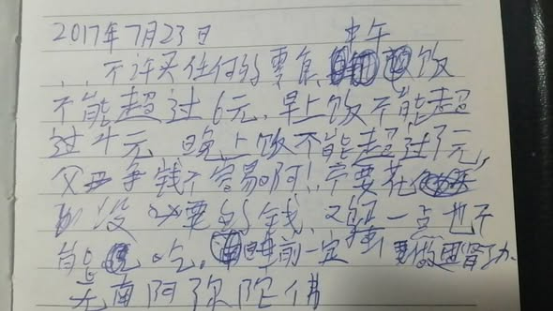 2017年7月23日
中午
不许买任何的零食 饭
不能超过6元,早上饭不能超
过4元 晚上饭不能超过7元,
父母争钱不容易啊!,不要花
没 要的钱, 一点也不
能 吃, 睡前一定 要做 肾功
无南阿弥陀佛